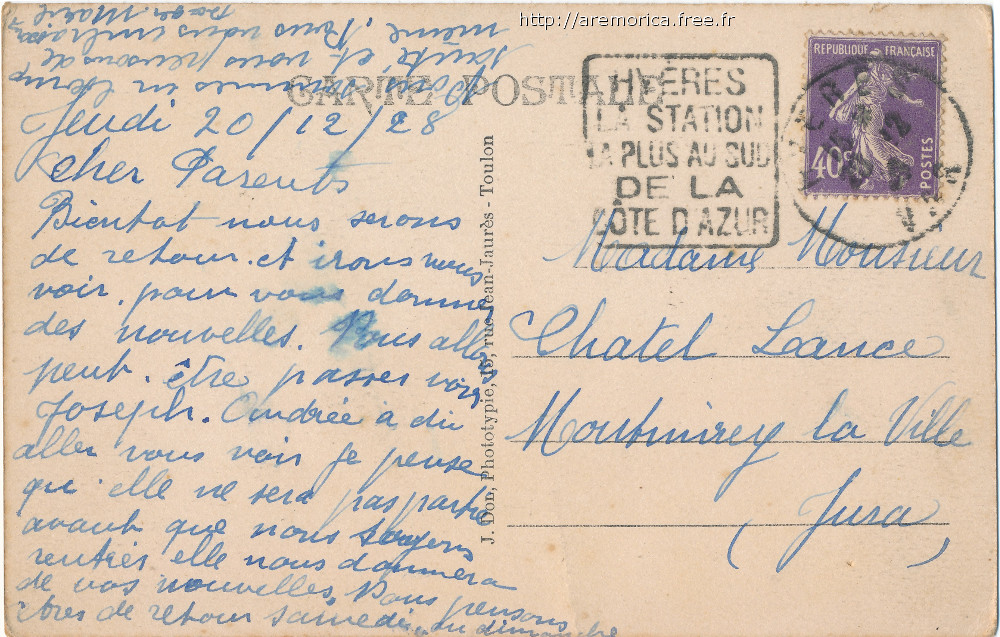 http://aremorica.free.fr
CARTE POSTALE
HYÈRES
LA STATION
LA PLUS AU SUD
DE LA
CÔTE D'AZUR
REPUBLIQUE FRANÇAISE
40c
POSTES
Jeudi 20/12/28
Cher Parents
Bientot nous serons
de retour et irons vous
voir, pour vous donner
des nouvelles. Nous allons
peut-être passer voir
Joseph. Andrée à du
aller vous voir je pense
qu'elle ne sera pas partie
avant que nous soyons
rentrés elle nous donnera
de vos nouvelles. Nous pensons
êtres de retour samedi ou dimanche
nous sommes in
santé et vous pensons de
même. Nous vous embrassons
Marie
J. Don, Phototypie, rue Jean-Jaurès - Toulon
Madame Monsieur
Chatel Lance
Montmirey la Ville
(Jura)